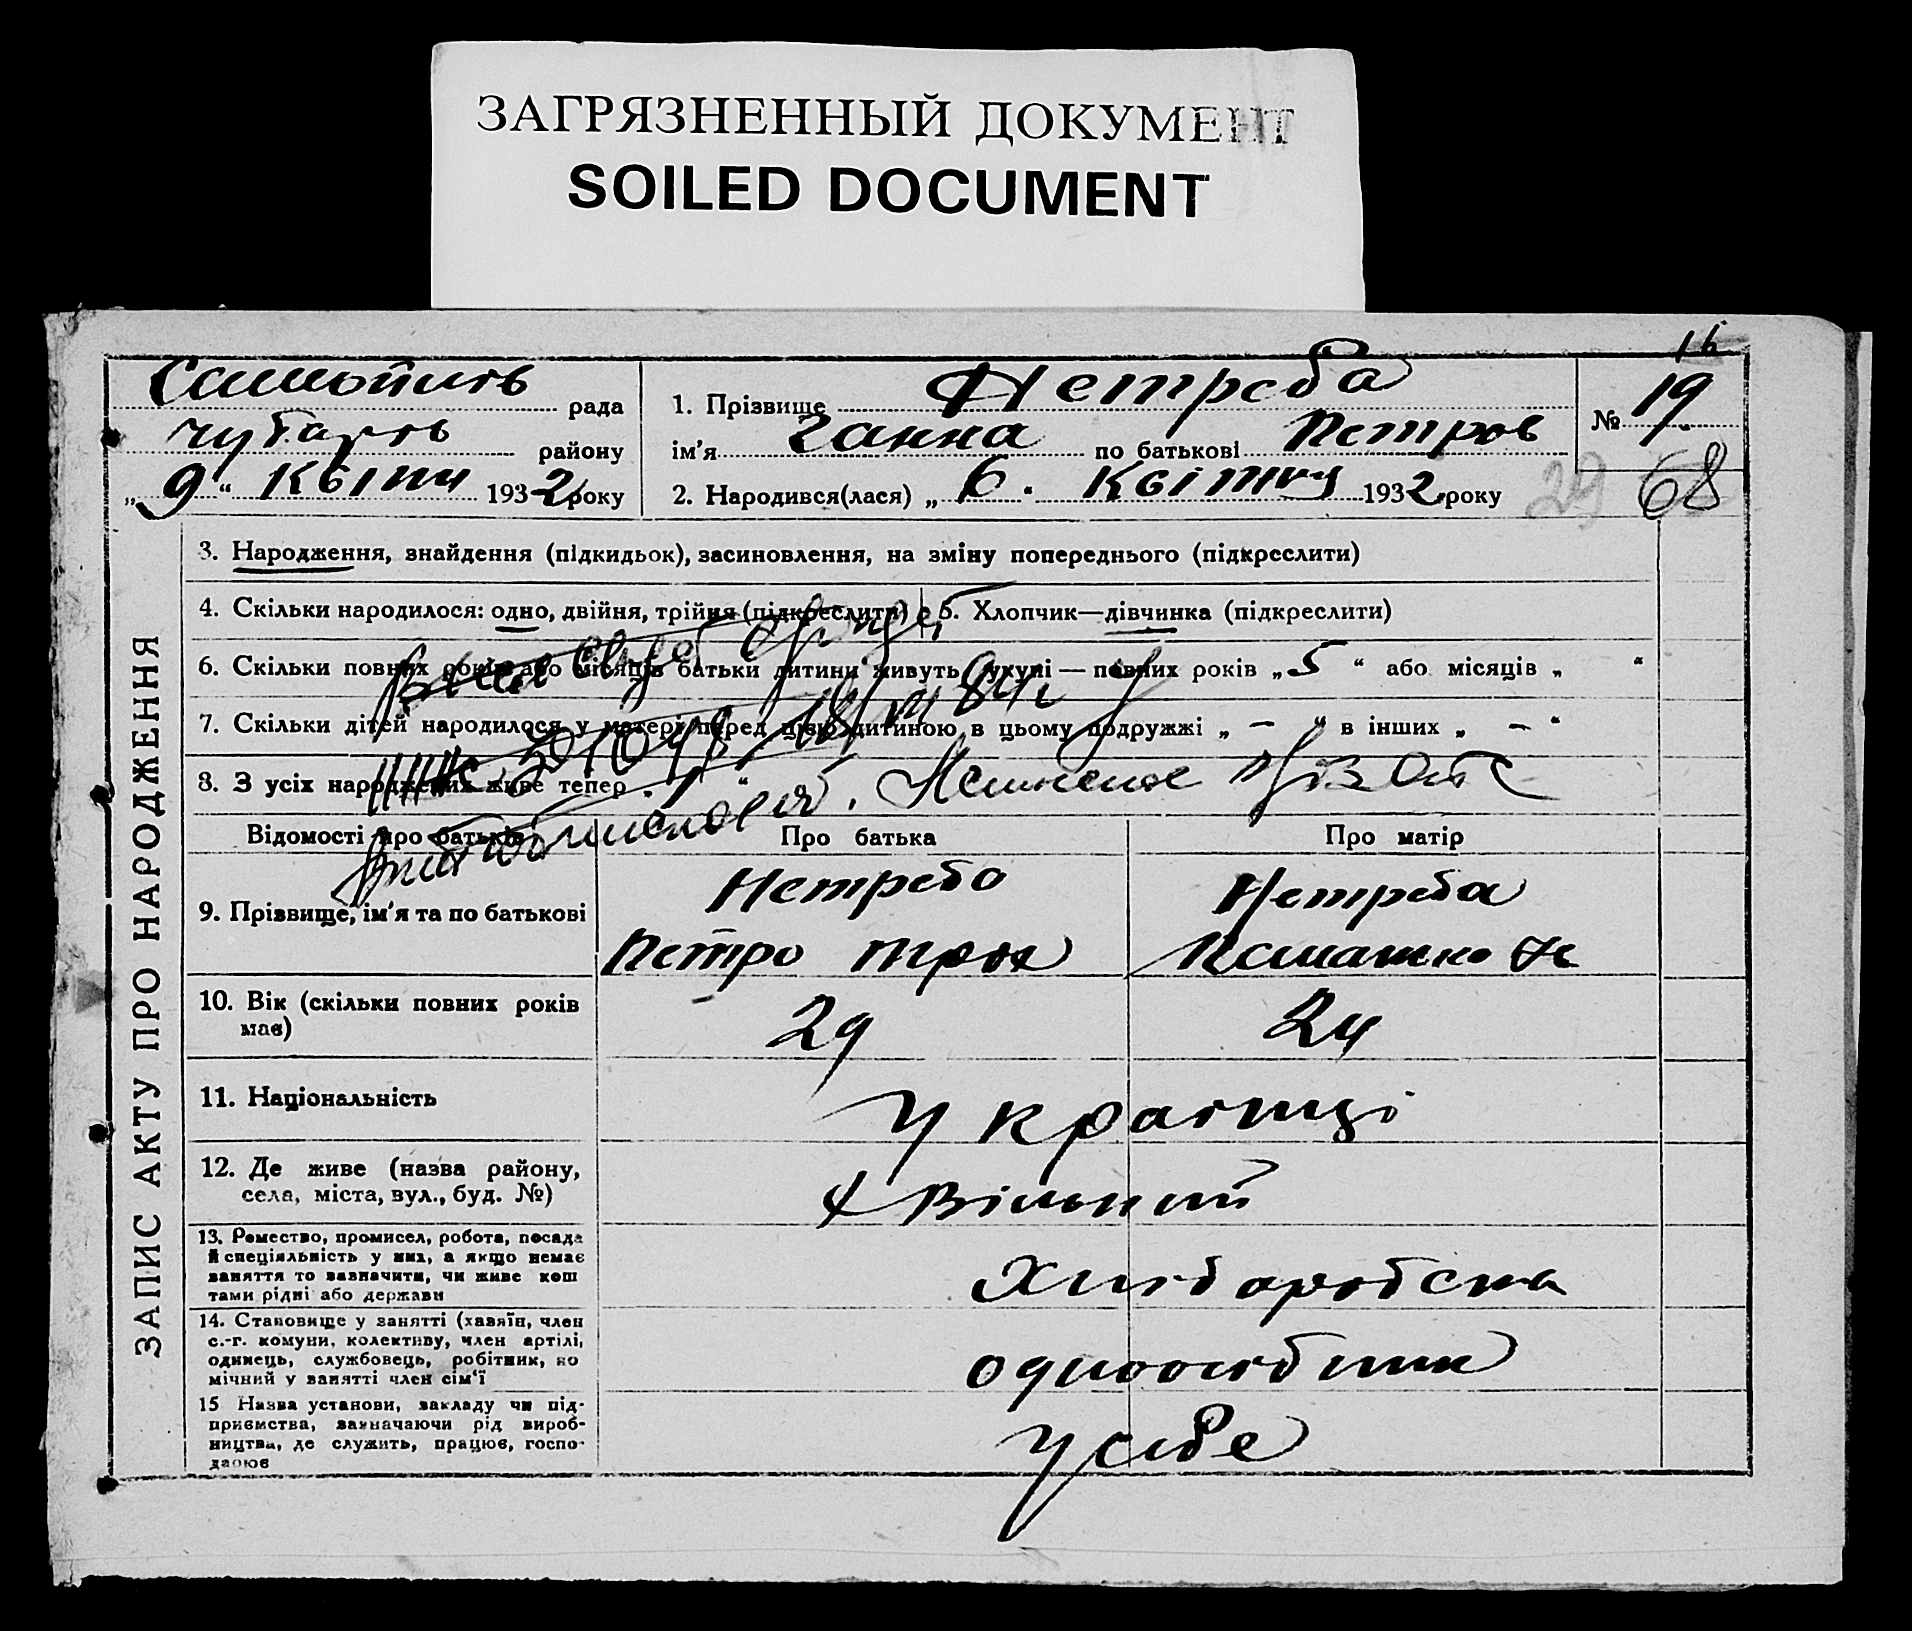 ЗАГРЯЗНЕННЫЙ ДОКУМЕНТ
SOILED DOCUMENT
16
рада
району
„ 9 “ Квітн 1932 року
1. Прізвище Нетреба
ім'я Ганна по батькові Петров
2. Народився(лася) „ 6. Квітня 1932 року
№ 19
29 68
ЗАПИС АКТУ ПРО НАРОДЖЕННЯ
3. Народження, знайдення (підкидьок), засиновлення, на зміну попереднього (підкреслити)
4. Скільки народилося: одно, двійня, трійня (підкреслити)
5. Хлопчик—дівчинка (підкреслити)
6. Скільки повних років або місяців батьки дитини живуть укупі — повних років „ 5 “ або місяців „ “
7. Скільки дітей народилося у матері перед цією дитиною в цьому подружжі „ — “ в інших „ — “
8. З усіх народжених живе тепер
Відомості про батьків
Про батька
Про матір
9. Прізвище, ім'я та по батькові
Нетреба
Петро
Нетреба
10. Вік (скільки повних років
має)
29
24
11. Національність
Українці
12. Де живе (назва району,
села, міста, вул., буд. №)
х Вільний
13. Ремество, промисел, робота, посада
й спеціяльність у них, а якщо немає
заняття то зазначити, чи живе кош
тами рідні або держави
Хліборобська
14. Становище у занятті (хазяїн, член
с.-г. комуни, колективу, член артілі,
одинець, службовець, робітник, по
мічний у занятті член сім'ї
одноосібник
15 Назва установи, закладу чи під-
приємства, зазначаючи рід вироб-
ництва, де служить, працює, госпо-
дарює
У себе